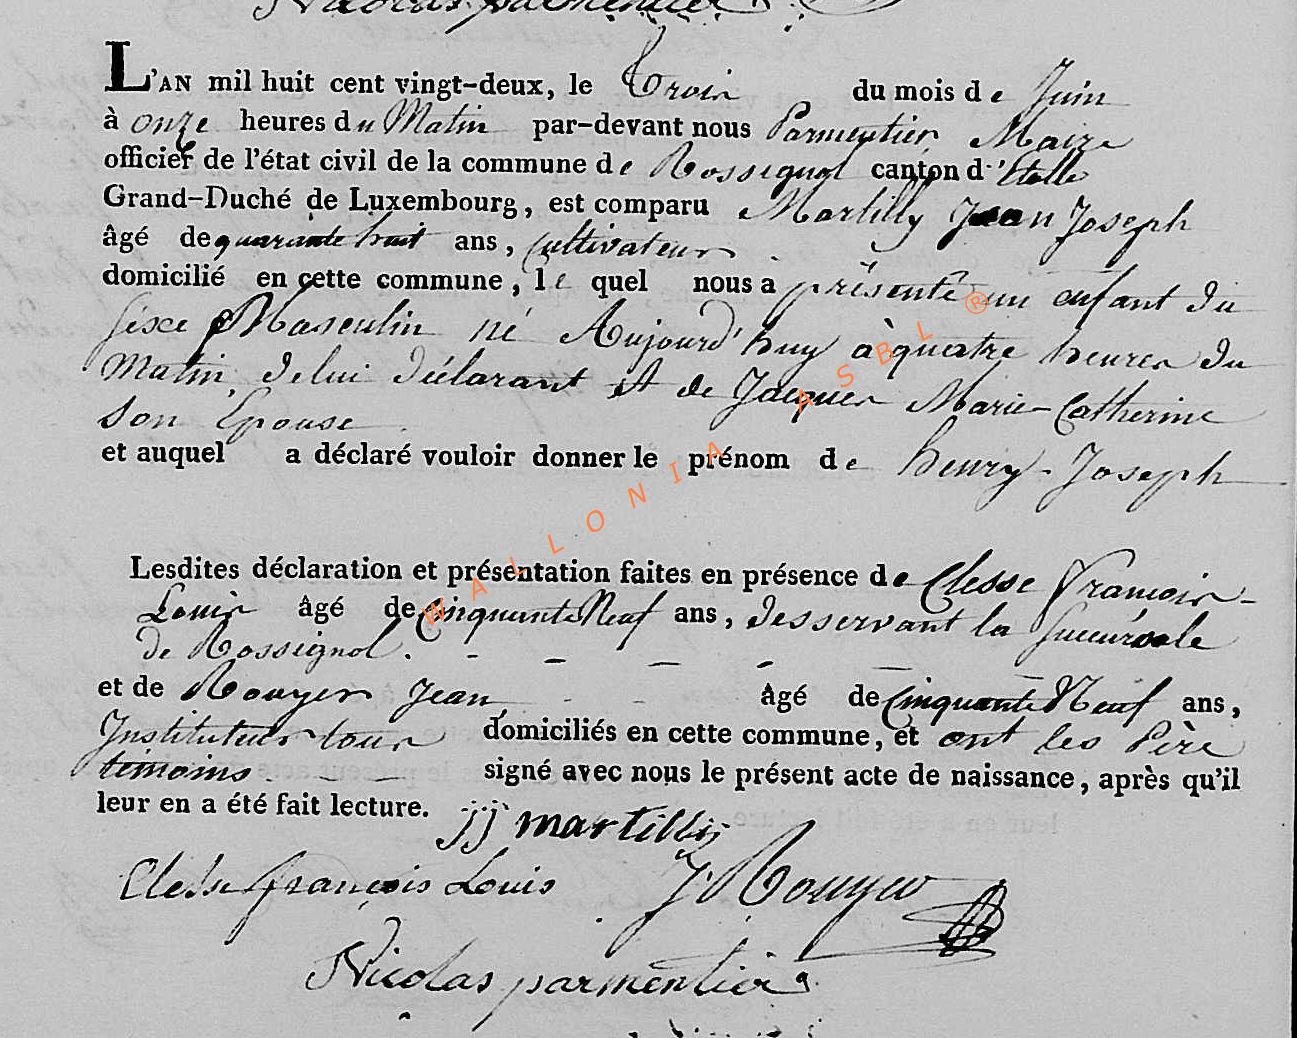 Nicolas parmentier
L'AN mil huit cent vingt-deux, le Trois du mois de Juin
à onze heures du Matin par-devant nous Parmentier Maire
officier de l'état civil de la commune de Rossignol canton d'Etalle
Grand-Duché de Luxembourg, est comparu Martilly Jean Joseph
âgé de quarante huit ans, Cultivateur
domicilié en cette commune, le quel nous a présenté un enfant du
sexe Masculin né Aujourd'huy à quatre heures du
Matin, de lui déclarant et de Jacques Marie-Catherine
Son Epouse
et auquel a déclaré vouloir donner le prénom de henry-Joseph
Lesdites déclaration et présentation faites en présence de Clesse François-
Louis âgé de Cinquante Neuf ans, desservant la Succursale
de Rossignol.
et de Rouyer Jean, âgé de Cinquante Neuf ans,
Instituteur tour domiciliés en cette commune, et ont les Père
témoins signé avec nous le présent acte de naissance, après qu'il
leur en a été fait lecture. jj martilly
Clesse françois Louis J. Rouyer
Nicolas parmentier
WALLONIA ASBL ®